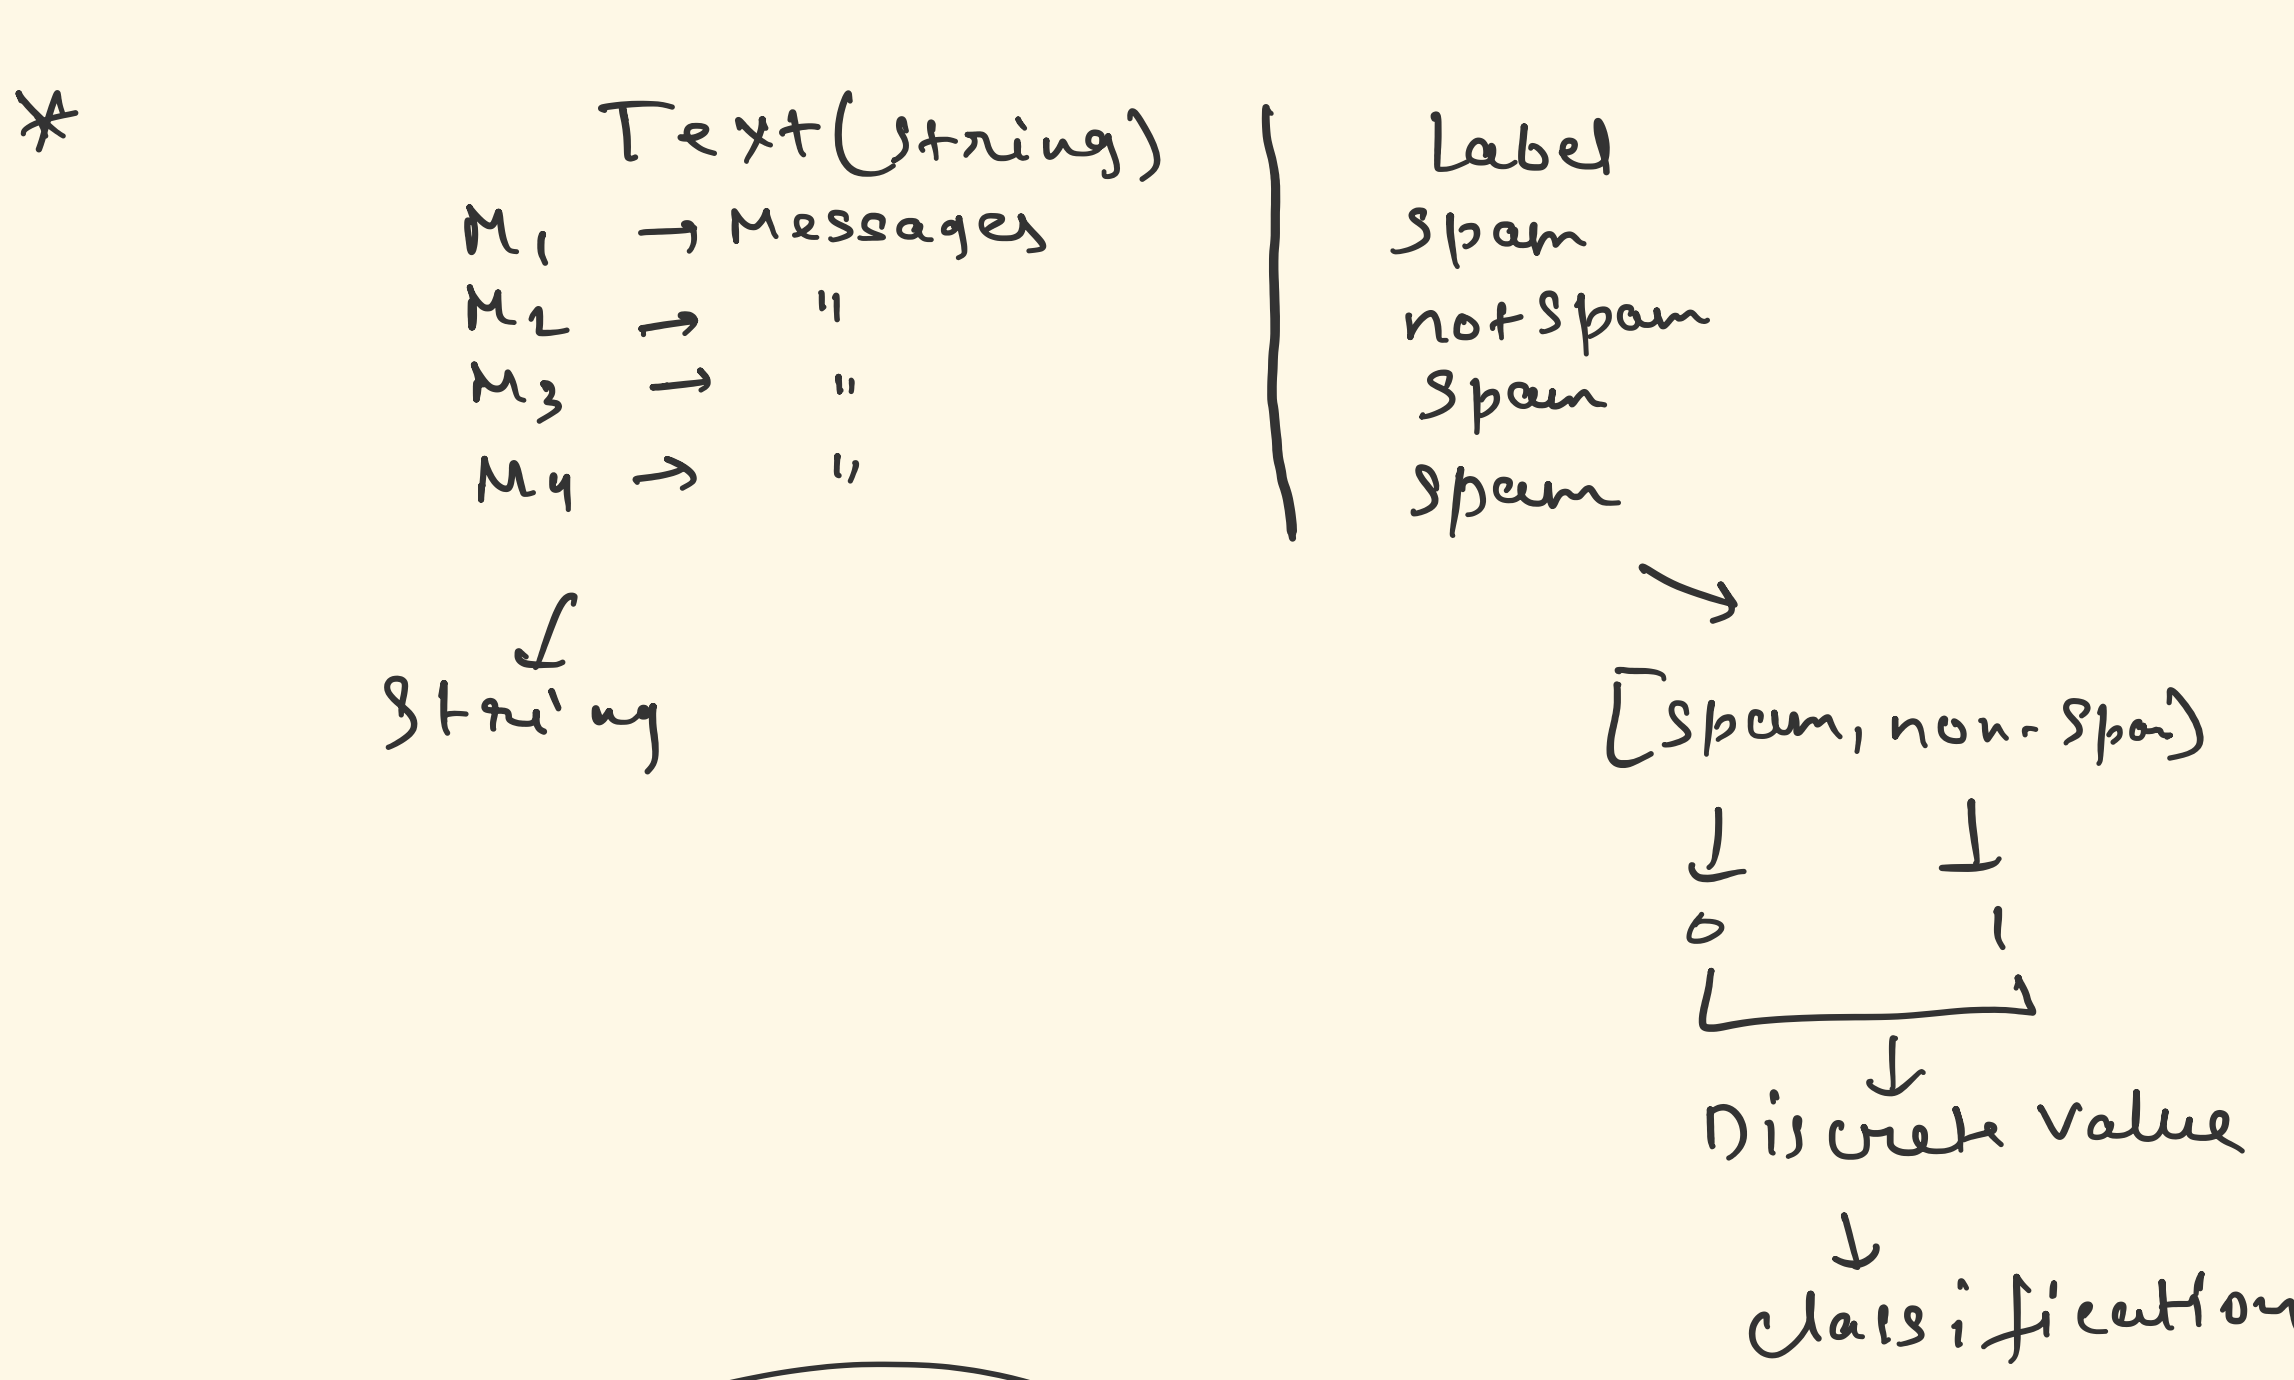 * Text(string) | Label
M1 → Messages spam
M2 → " not spam
M3 → " spam
M4 → " spam
String
[spam, non-spam)
0 1
Discrete value
classification